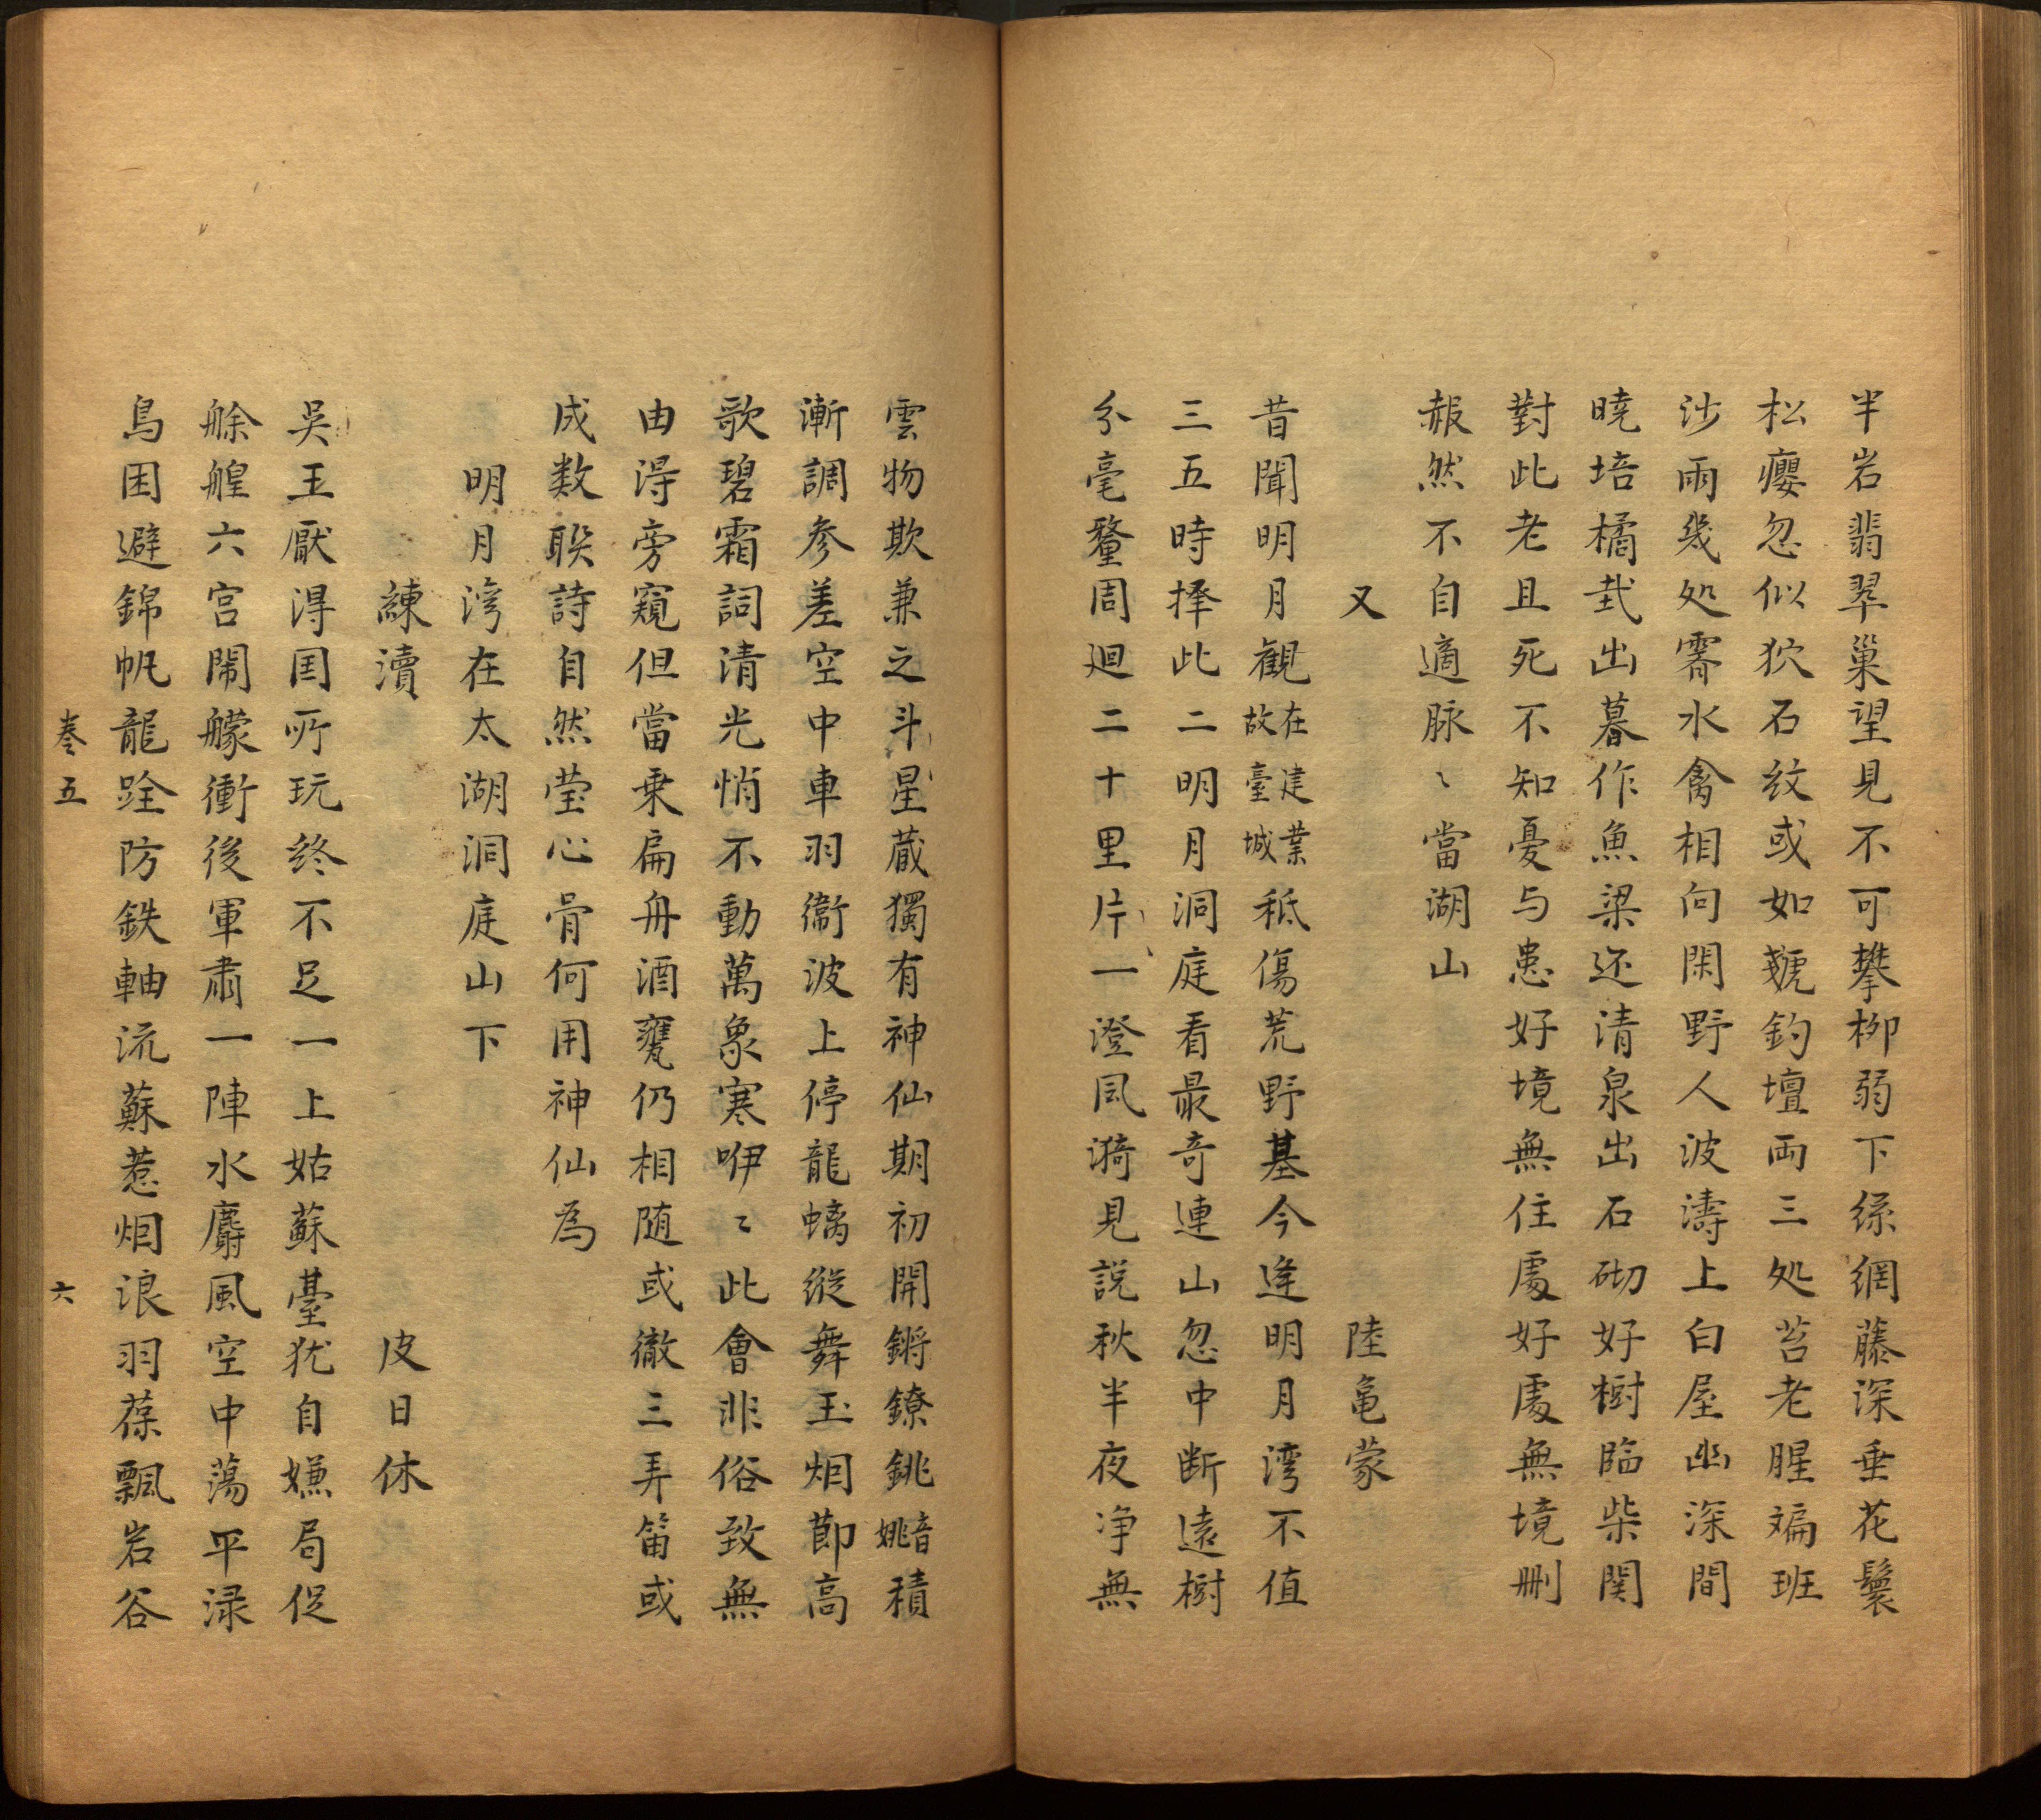 半岩翡翠巢望見不可攀栁弱下絲網藤深垂花鬟
松癭忽似狖石紋或如虦釣壇両三处苔老腥斒班
沙雨幾处霽水禽相向閑野人波濤上白屋幽深間
曉培橘栽出暮作魚梁还清泉出石砌好樹臨柴関
對此老且死不知憂与患好境無住處好處無境刪
赧然不自適脉〻當湖山
又　陸龜蒙
昔聞明月觀在建業故臺城秪傷荒野基今逢明月湾不值
三五時擇此二明月洞庭看最奇連山忽中断遠樹
分毫釐周廻二十里片一澄風漪見說秋半夜净無
雲物欺兼之斗星蔵獨有神仙期初開鏘鐐銚音姚積
漸調参差空中車羽衞波上停龍螭縦舞玉烟節高
歌碧霜詞清光悄不動萬象寒咿〻此會非俗致無
由淂旁窺但當乗扁舟酒甕仍相随或徹三弄笛或
成数联詩自然莹心骨何用神仙為
明月湾在太湖洞庭山下
練瀆　皮日休
吳王厭淂国所玩终不足一上姑蘇臺犹自嫌局促
艅艎六宫鬧艨衝後軍肅一陣水麝風空中蕩平渌
鳥困避錦帆龍跧防鉄軸流蘇惹烟浪羽葆飄岩谷
巻五　六